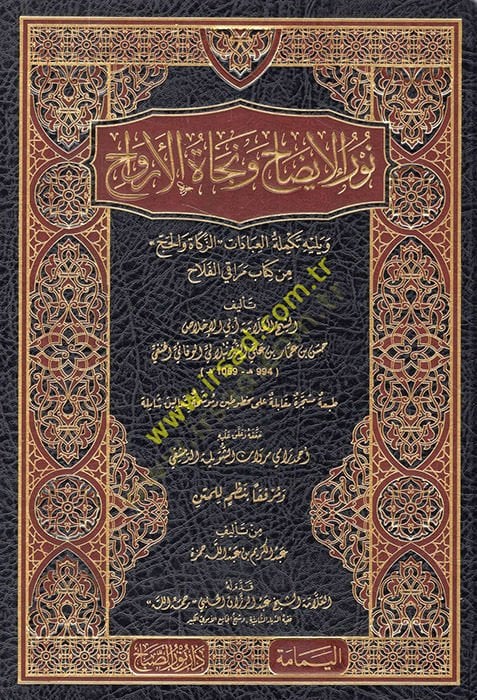 نور الإيضاح ونجاة الأرواح
ويليه تكملة العبادات "الزكاة والحج"
من كتاب مراقي الفلاح
تأليف
الشيخ العلامة أبي الإخلاص
حسن بن عمار بن علي الشرنبلالي الوفائي الحنفي
( 994 هـ - 1069 هـ )
طبعة مشجرة مقابلة على مخطوطين
حققه وعلق عليه
أحمد
الدمشقي
ومرفقا بنظم للمتن
من تأليف
عبد الكريم بن عبد اللـه حمزة
قدم له
العلامة الشيخ عبد الرزاق الحلبي "رحمه اللـه"
اليمامة
دار نور الصباح
www.irsad.com.tr